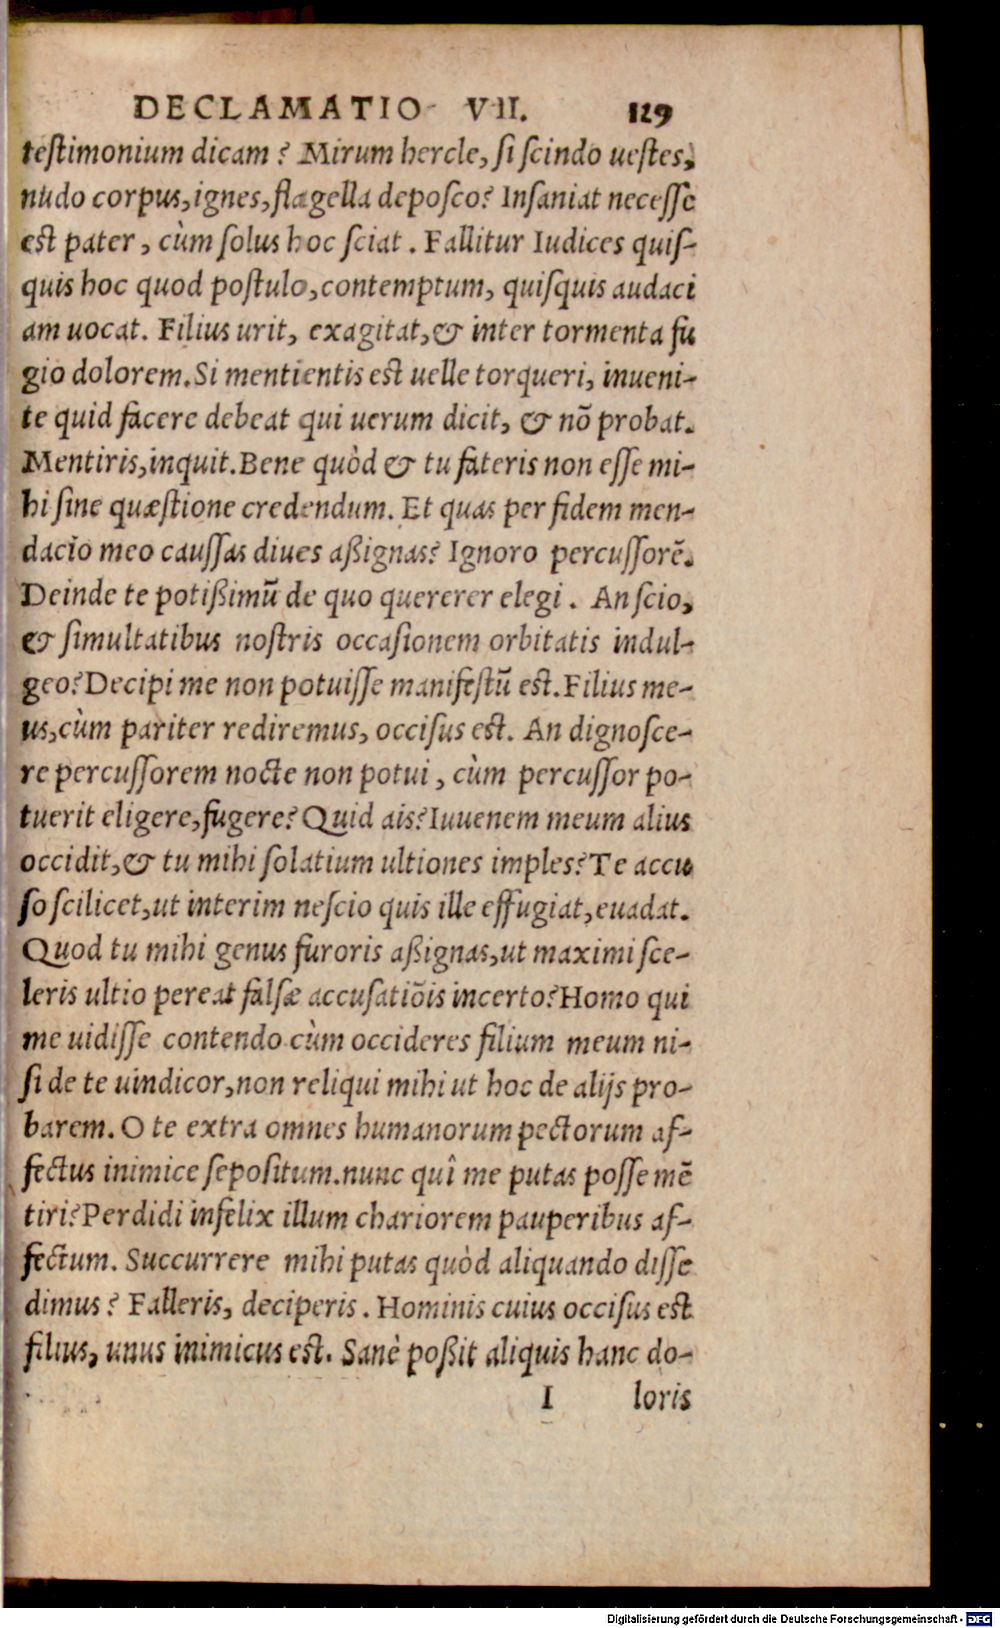 DECLAMATIO VII. 129
testimonium dicam? Mirum hercle, si scindo uestes,
nudo corpus, ignes, flagella deposco? Insaniat necesse
est pater, cùm solus hoc sciat. Fallitur Iudices quis-
quis hoc quod postulo, contemptum, quisquis audaci
am uocat. Filius urit, exagitat, & inter tormenta fu
gio dolorem. Si mentientis est uelle torqueri, inueni-
te quid facere debeat qui uerum dicit, & nō probat.
Mentiris, inquit. Bene quòd & tu fateris non esse mi-
hi sine quæstione credendum. Et quas per fidem men-
dacio meo caussas diues aßignas? Ignoro percussorē.
Deinde te potißimū de quo quererer elegi. An scio,
& simultatibus nostris occasionem orbitatis indul-
geo? Decipi me non potuisse manifestū est. Filius me-
us, cùm pariter rediremus, occisus est. An dignosce-
re percussorem nocte non potui, cùm percussor po-
tuerit eligere, fugere? Quid ais? Iuuenem meum alius
occidit, & tu mihi solatium ultiones imples? Te accu
so scilicet, ut interim nescio quis ille effugiat, euadat.
Quod tu mihi genus furoris aßignas, ut maximi sce-
leris ultio pereat falsæ accusatiōis incerto? Homo qui
me uidisse contendo cùm occideres filium meum ni-
si de te uindicor, non reliqui mihi ut hoc de alijs pro-
barem. O te extra omnes humanorum pectorum af-
fectus inimice sepositum. nunc quî me putas posse mē
tiri? Perdidi infelix illum chariorem pauperibus af-
fectum. Succurrere mihi putas quòd aliquando disse
dimus? Falleris, deciperis. Hominis cuius occisus est
filius, unus inimicus est. Sanè poßit aliquis hanc do-
I loris
Digitalisierung gefördert durch die Deutsche Forschungsgemeinschaft - DFG